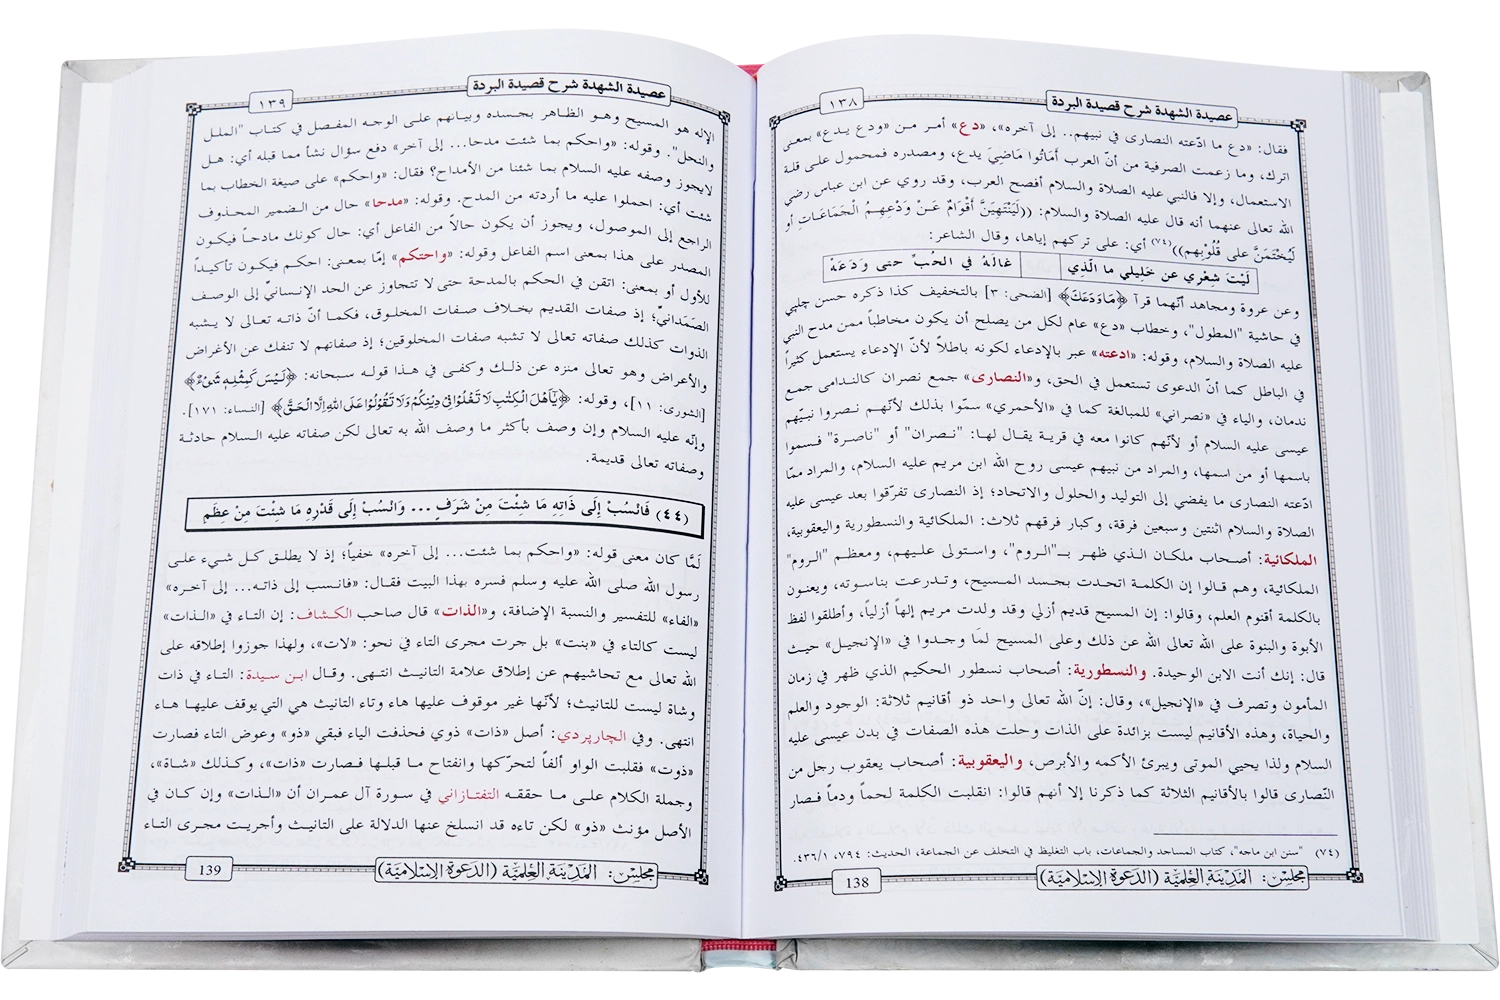 عصيدة الشهدة شرح قصيدة البردة
١٣٨
فقال: «دع ما ادّعته النصارى في نبيهم.. إلى آخره»، «دع» أمر من «ودع يدع» بمعنى
اترك، وما زعمت الصرفية من أنّ العرب أَمَاتُوا مَاضِيَ يدع، ومصدره فمحمول على قلة
الاستعمال، وإلا فالنبي عليه الصلاة والسلام أفصح العرب، وقد روي عن ابن عباس رضي
الله تعالى عنهما أنه قال عليه الصلاة والسلام: ((لَيَنْتَهِيَنَّ أَقْوَامٌ عَنْ وَدْعِهِمُ الْجَمَاعَاتِ أو
لَيُخْتَمَنَّ على قُلُوْبِهم))(٧٤) أي: على تركهم إياها، وقال الشاعر:
لَيْتَ شِعْرِي عن خَلِيلِي ما الَّذِي غالَهُ في الحُبِّ حتى وَدَعَهْ
وعن عروة ومجاهد أنّهما قرآ ﴿مَاوَدَعَكَ﴾ [الضحى: ٣] بالتخفيف كذا ذكره حسن چلپي
في حاشية "المطول"، وخطاب «دع» عام لكل من يصلح أن يكون مخاطباً ممن مدح النبي
عليه الصلاة والسلام، وقوله: «ادعته» عبر بالإدعاء لكونه باطلاً لأنّ الإدعاء يستعمل كثيراً
في الباطل كما أنّ الدعوى تستعمل في الحق، و«النصارى» جمع نصران كالندامى جمع
ندمان، والياء في «نصراني» للمبالغة كما في «الأحمري» سمّوا بذلك لأنّهم نصروا نبيّهم
عيسى عليه السلام أو لأنّهم كانوا معه في قرية يقال لها: "نصران" أو "ناصرة" فسموا
باسمها أو من اسمها، والمراد من نبيهم عيسى روح الله ابن مريم عليه السلام، والمراد ممّا
ادّعته النصارى ما يفضي إلى التوليد والحلول والاتحاد؛ إذ النصارى تفرّقوا بعد عيسى عليه
الصلاة والسلام اثنتين وسبعين فرقة، وكبار فرقهم ثلاث: الملكائية والنسطورية واليعقوبية،
الملكائية: أصحاب ملكان الذي ظهر بـ"الروم"، واستولى عليهم، ومعظم "الروم"
الملكائية، وهم قالوا إن الكلمة اتحدت بجسد المسيح، وتدرعت بناسوته، ويعنون
بالكلمة أقنوم العلم، وقالوا: إن المسيح قديم أزلي وقد ولدت مريم إلهاً أزلياً، وأطلقوا لفظ
الأبوة والبنوة على الله تعالى الله عن ذلك وعلى المسيح لمَا وجدوا في «الإنجيل» حيث
قال: إنك أنت الابن الوحيدة. والنسطورية: أصحاب نسطور الحكيم الذي ظهر في زمان
المأمون وتصرف في «الإنجيل»، وقال: إنّ الله تعالى واحد ذو أقانيم ثلاثة: الوجود والعلم
والحياة، وهذه الأقانيم ليست بزائدة على الذات وحلت هذه الصفات في بدن عيسى عليه
السلام ولذا يحيي الموتى ويبرئ الأكمه والأبرص، واليعقوبية: أصحاب يعقوب رجل من
النّصارى قالوا بالأقانيم الثلاثة كما ذكرنا إلا أنهم قالوا: انقلبت الكلمة لحماً ودماً فصار
(٧٤) "سنن ابن ماجه"، كتاب المساجد والجماعات، باب التغليظ في التخلف عن الجماعة، الحديث: ٧٩٤، ٤٣٦/١.
مجلس: المدينة العلمية (الدعوة الإسلامية)
138
عصيدة الشهدة شرح قصيدة البردة
١٣٩
الإله هو المسيح وهو الظاهر بجسده وبيانهم على الوجه المفصل في كتاب "الملل
والنحل". وقوله: «واحكم بما شئت مدحا... إلى آخر» دفع سؤال نشأ مما قبله أي: هل
لايجوز وصفه عليه السلام بما شئنا من الأمداح؟ فقال: «واحكم» على صيغة الخطاب بما
شئت أي: احملوا عليه ما أردته من المدح. وقوله: «مدحا» حال من الضمير المحذوف
الراجع إلى الموصول، ويجوز أن يكون حالاً من الفاعل أي: حال كونك مادحاً فيكون
المصدر على هذا بمعنى اسم الفاعل وقوله: «واحتكم» إمّا بمعنى: احكم فيكون تأكيداً
للأول أو بمعنى: اتقن في الحكم بالمدحة حتى لا تتجاوز عن الحد الإنسانيّ إلى الوصف
الصَمَدانيّ؛ إذ صفات القديم بخلاف صفات المخلوق، فكما أنّ ذاته تعالى لا يشبه
الذوات كذلك صفاته تعالى لا تشبه صفات المخلوقين؛ إذ صفاتهم لا تنفك عن الأغراض
والأعراض وهو تعالى منزه عن ذلك وكفى في هذا قوله سبحانه: ﴿لَيْسَ كَمِثْلِهٖ شَیْءٌ﴾
[الشورى: ١١]، وقوله: ﴿يٰٓاَهْلَ الْكِتٰبِ لَا تَغْلُوْا فِیْ دِيْنِكُمْ وَلَا تَقُوْلُوْا عَلَی اللهِ اِلَّا الْحَقَّ﴾ [النساء: ١٧١].
وإنّه عليه السلام وإن وصف بأكثر ما وصف الله به تعالى لكن صفاته عليه السلام حادثة
وصفاته تعالى قديمة.
(٤٤) فَانْسُبْ إِلَى ذَاتِهِ مَا شِئْتَ مِنْ شَرَفٍ ... وَانْسُبْ إِلَى قَدْرِهِ مَا شِئْتَ مِنْ عِظَمِ
لَمَّا كان معنى قوله: «واحكم بما شئت... إلى آخره» خفياً؛ إذ لا يطلق كل شيء على
رسول الله صلى الله عليه وسلم فسره بهذا البيت فقال: «فانسب إلى ذاته... إلى آخره»
«الفاء» للتفسير والنسبة الإضافة، و«الذات» قال صاحب الكشاف: إن التاء في «الذات»
ليست كالتاء في «بنت» بل جرت مجرى التاء في نحو: «لات»، ولهذا جوزوا إطلاقه على
الله تعالى مع تحاشيهم عن إطلاق علامة التانيث انتهى. وقال ابن سيدة: التاء في ذات
وشاة ليست للتانيث؛ لأنّها غير موقوف عليها هاء وتاء التانيث هي التي يوقف عليها هاء
انتهى. وفي الچارپردي: أصل «ذات» ذوي فحذفت الياء فبقي «ذو» وعوض التاء فصارت
«ذوت» فقلبت الواو ألفاً لتحرّكها وانفتاح ما قبلها فصارت «ذات»، وكذلك «شاة»،
وجملة الكلام على ما حققه التفتازاني في سورة آل عمران أن «الذات» وإن كان في
الأصل مؤنث «ذو» لكن تاءه قد انسلخ عنها الدلالة على التانيث وأجريت مجرى التاء
مجلس: المدينة العلمية (الدعوة الإسلامية)
139